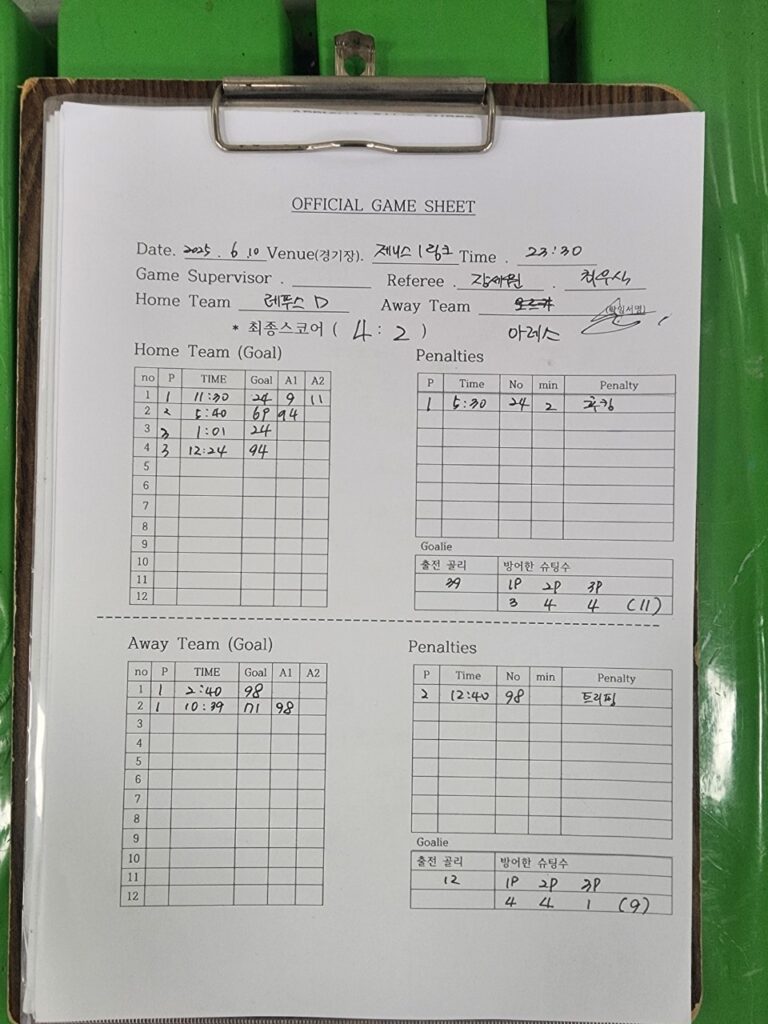 OFFICIAL GAME SHEET
Date. 2025 . 6 .10 Venue(경기장). 제니스 1링크 Time . 23:30
Game Supervisor . Referee . 최우식
Home Team 레푸스 D Away Team
* 최종스코어 ( 4 : 2 ) 아레스
Home Team (Goal)
no P TIME Goal A1 A2
1 1 11:30 24 9 11
2 2 5:40 69 94
3 3 1:01 24
4 3 12:24 94
5
6
7
8
9
10
11
12
Penalties
P Time No min Penalty
1 5:30 24 2 후킹
Goalie
출전 골리 방어한 슈팅수
39 1P 2P 3P
3 4 4 (11)
Away Team (Goal)
no P TIME Goal A1 A2
1 1 2:40 98
2 1 10:39 71 98
3
4
5
6
7
8
9
10
11
12
Penalties
P Time No min Penalty
2 12:40 98 트리핑
Goalie
출전 골리 방어한 슈팅수
12 1P 2P 3P
4 4 1 (9)